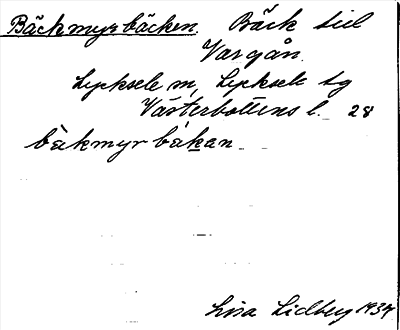 Bäckmyrbäcken. Bäck till
Vargån.
Lycksele m, Lycksele tg
Västerbottens l. 28
bäkmyrbäkan
Lisa Lidberg 1934